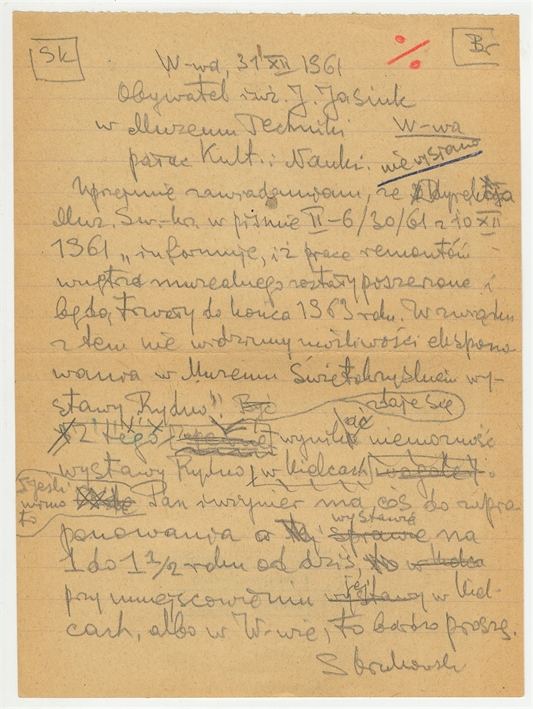 Sk
Br
W-wa, 31 XII 1961
Obywatel inż. J. Jasiuk
w Muzeum Techniki W-wa
pałac Kult. i Nauki. nie wysłano
Uprzejmie zawiadamiam, że Dyrekcja
Muz. Św.-krz. w piśmie II-6/30/61 z 10 XII
1961 „informuje, iż prace remontów
wnętrz muzealnego zostały poszerzone i
będą trwały do końca 1963 roku. W związku
z tem nie widzimy możliwości ekspono-
wania w Muzeum Świętokrzyskiem wy-
stawy „Rydno". Być zdaje się
z tego wynikać niemożność
wystawy Rydno w Kielcach wogóle.
Jeśli
mimo
to
Pan inżynier ma coś do zapro-
ponowania o tej sprawie wystawie na
1 do 1 1/2 roku od dziś, w
przy umiejscowieniu wystawy jej w Kiel-
cach, albo w W-wie, to bardzo proszę.
S Krukowski